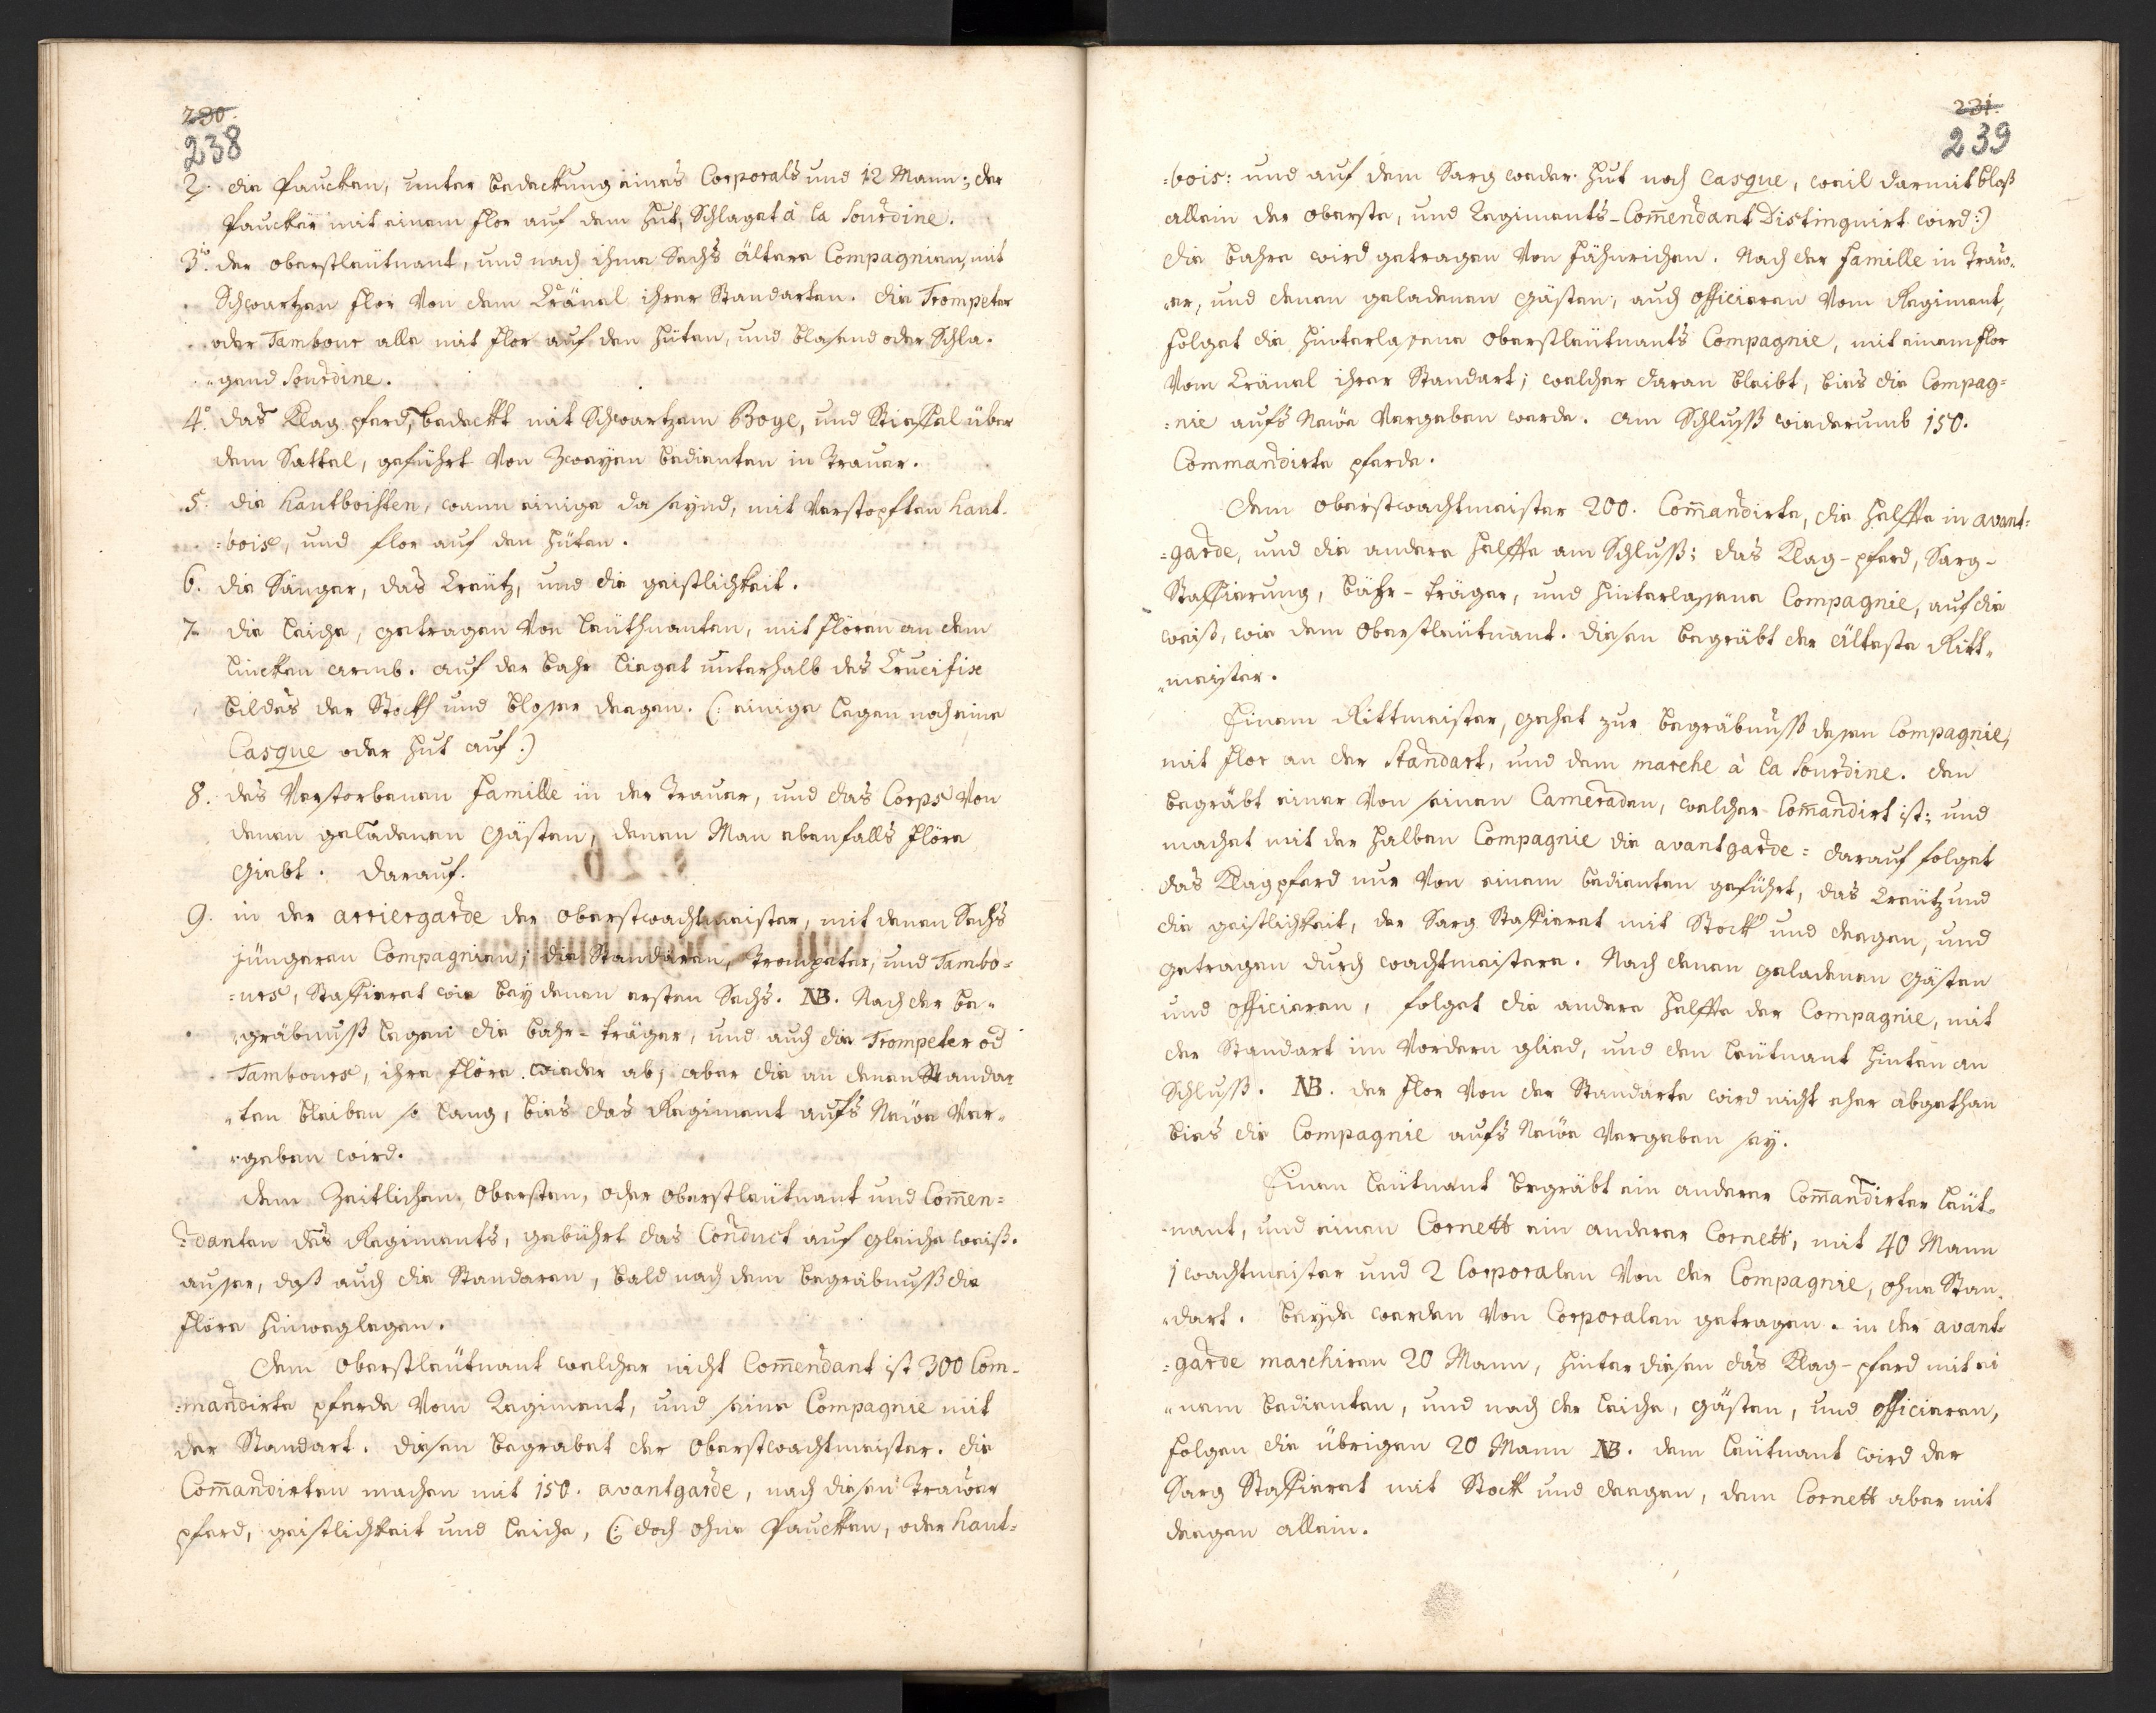 230.
238
2. die Paucken, unter bedeckung eines Corporals und 12 Mann; der
Paucker mit einem flor auf dem Hut, Schlaget à la Sourdine.
3.io der oberstleütnant, und nach ihme Sechs ältere Compagnien, mit
Schwartzen flor Von dem Cränel ihrer Standarten. die Trompeter
oder Tambour alle mit flor auf den Hüten, und blasend oder Schla-
gend Sourdine.
4.o das Klag pferd, bedeckt mit Schwartzem Boge, und Stieffel über
dem Sattel, geführt Von Zweyen bedienten in Trauer.
5. die Hautboisten, wann einige da seynd, mit Verstopften Haut-
=bois, und flor auf den Hüten.
6. die Sänger, das Creütz, und die geistlichkeit.
7. die leiche, getragen Von leüthnanten, mit flören an dem
lincken armb. auf der bahr lieget unterhalb des Crucifix
bildes der Stockh und bloser deegen. (: einige legen noch eine
Casque oder Hut auf:)
8. des Verstorbenen Famille in der Trauer, und das Corps Von
denen geladenen Gästen, denen Man ebenfalls flöre
giebt. darauf.
9. in der arriergarde der oberstwachtmeister, mit denen Sechs
jüngeren Compagnien; die Standaren, Trompeter, und Tambo=
=urs, Staffieret wie bey denen ersten Sechs. NB. Nach der be-
gräbnuß legen die bahr-träger, und auch die Trompeter od
Tambours, ihre flöre wieder ab, aber die an denen Standar
ten bleiben so lang, bies das Regiment aufs Neüe Ver-
geben wird.
dem Zeitlichen Obersten, oder oberstleütnant und Com̄en=
=danten des Regiments, gebührt das Conduct auf gleiche weiß.
auser, daß auch die Standaren, bald nach dem begräbnuß die
flöre hinweglegen.
dem Oberstleütnant welcher nicht Com̄endant ist 300 Com-
=mandirte pferde Vom Regiment, und seine Compagnie mit
der Standart. diesen begrabet der Oberstwachtmeister. die
Com̄andirten machen mit 150. avantgarde, nach diesen Trauer
pferd, geistlichkeit und leiche, (: doch ohne Paucken, oder Haut=
231.
239
=bois: und auf dem Sarg weder Hut noch Casque, weil darmit bloß
allein der oberste, und Regiments-Com̄endant Distinguirt wird:)
die bahre wird getragen Von fähnrichen. Nach der famille in Trau-
er, und denen geladenen Gästen, auch officieren Vom Regiment,
folget die Hinterlasene Oberstleütnants Compagnie, mit einem flor
Vom Cränel ihrer Standart; welcher daran bleibt, bies die Compag=
=nie aufs Neüe Vergeben werde. am Schluß wiederumb 150.
Commandirte pferde.
dem oberstwachtmeister 200. Com̄andirte, die Helffte in avant=
=garde, und die andere Helffte am Schluß: das Klag-pferd, Sarg-
Staffierung, bahr-träger, und Hinterlassene Compagnie, auf die
weiß, wie dem Oberstleütnant. diesen begräbt der älteste Ritt-
meister.
Einem Rittmeister, gehet zur begräbnuß desen Compagnie,
mit flor an der Standart, und dem marche à la Sourdine. den
begräbt einer Von seinen Cameraden, welcher Com̄andirt ist; und
machet mit der Halben Compagnie die avantgarde: darauf folget
das Klagpferd nur Von einem bedienten geführt, das Creütz und
die geistlichkeit, der Sarg Staffieret mit Stock und deegen, und
getragen durch wachtmeistere. Nach denen geladenen Gästen
und officieren, folget die andere Helffte der Compagnie, mit
der Standart im Vordern glied, und den leütnant Hinten an
Schluß. NB. der flor Von der Standarte wird nicht eher abgethan
bies die Compagnie aufs Neüe Vergeben sey.
Einen leütnant begräbt ein anderer Com̄andirter leüt-
nant, und einen Cornett ein anderer Cornett, mit 40 Mann
1 wachtmeister und 2 Corporalen Von der Compagnie, ohne Stan-
dart. beyde werden Von Corporalen getragen. in der avant=
=garde marchiren 20 Mann, Hinter diesen das Klag-pferd mit ei
nem bedienten, und nach der leiche, gästen, und officieren,
folgen die übrigen 20 Mann NB. dem leütnant wird der
Sarg Staffieret mit Stock und deegen, dem Cornett aber mit
deegen allein.